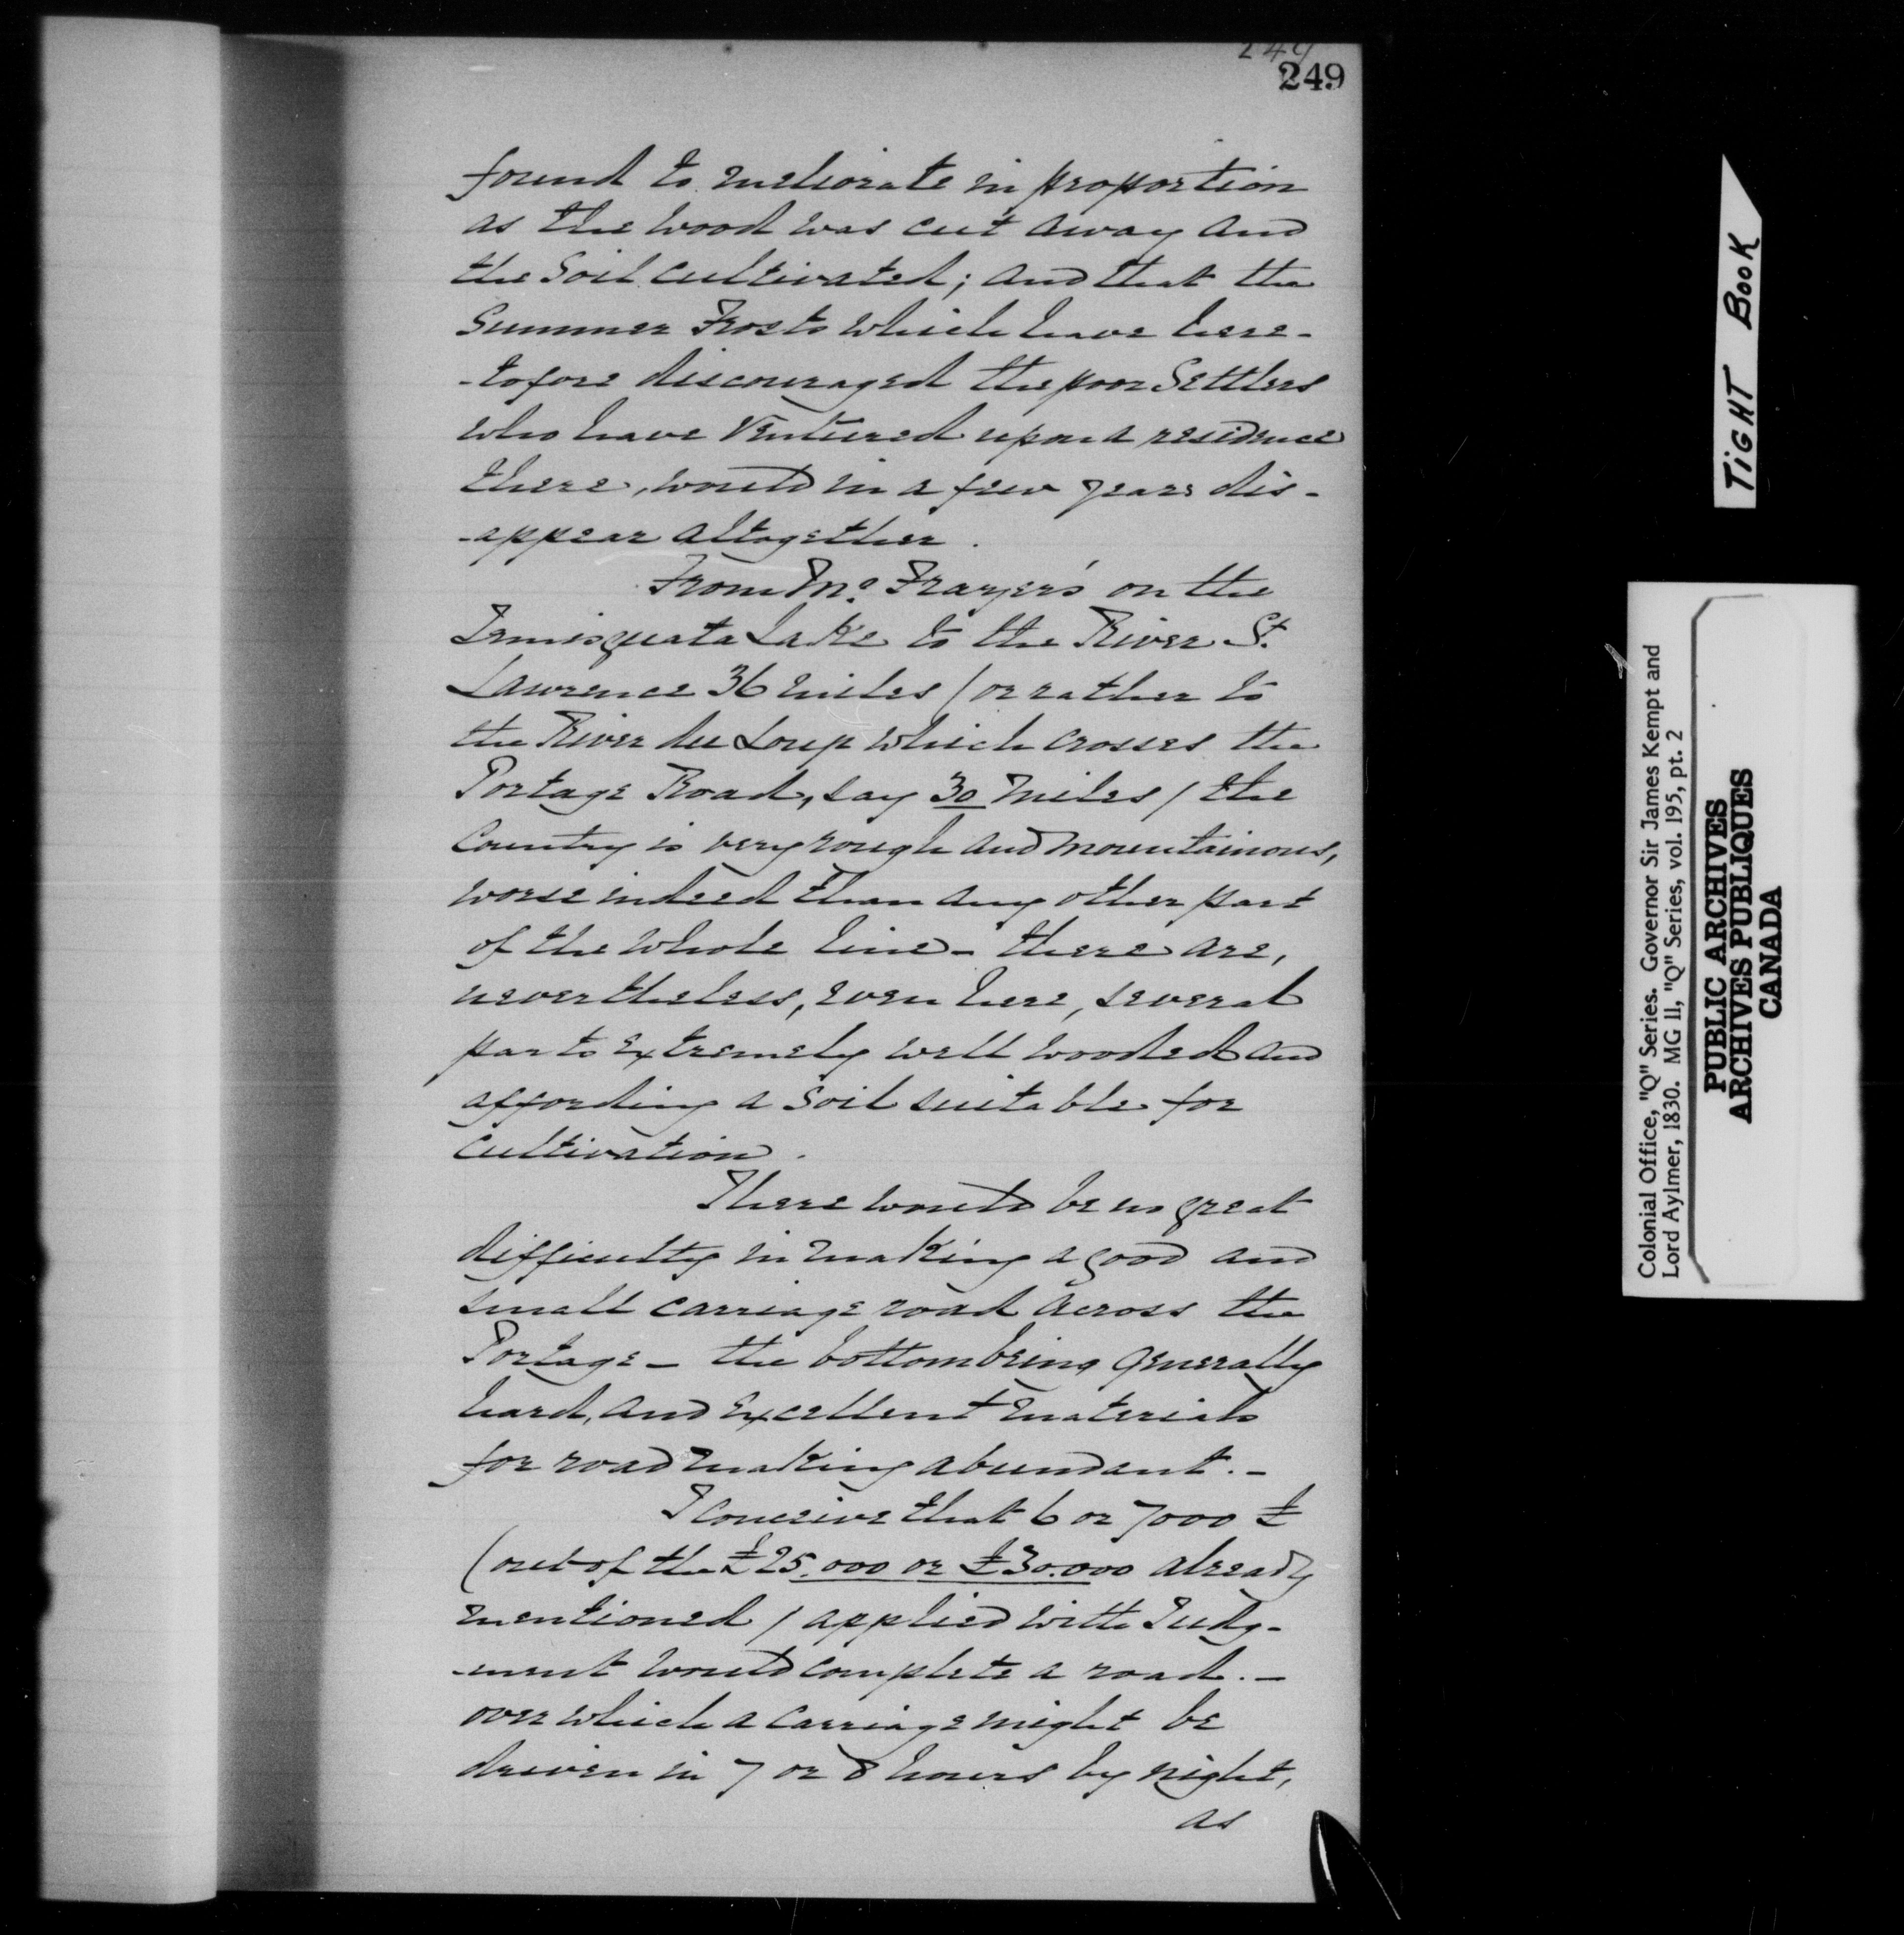 249
249
found to meliorate in proportion
as the wood was cut away and
the Soil cultivated; and that the
Summer Frosts which have here-
-tofore discouraged the poor Settlers
who have Ventured upon a residence
there, would in a few years dis-
-appear altogether.
From Mr. Frazer's on the
Temisquata Lake to the River St.
Lawrence 36 miles (or rather to
the River du Loup which crosses the
Portage Road, say 30 miles) the
Country is very rough and mountainous,
worse indeed than any other part
of the whole line - there are,
nevertheless, even here, several
parts extremely well wooded and
affording a soil suitable for
cultivation.
There would be no great
difficulty in making a good and
small carriage road across the
Portage - the bottom being generally
hard, and excellent materials
for road making abundant. -
I conceive that 6 or 7000 £
(out of the £25.000 or £30.000 already
mentioned) applied with Judg-
-ment would complete a road. -
over which a carriage might be
driven in 7 or 8 hours by night,
as
TIGHT BOOK
Colonial Office, "Q" Series. Governor Sir James Kempt and
Lord Aylmer, 1830. MG 11, "Q" Series, vol. 195, pt. 2
PUBLIC ARCHIVES
ARCHIVES PUBLIQUES
CANADA